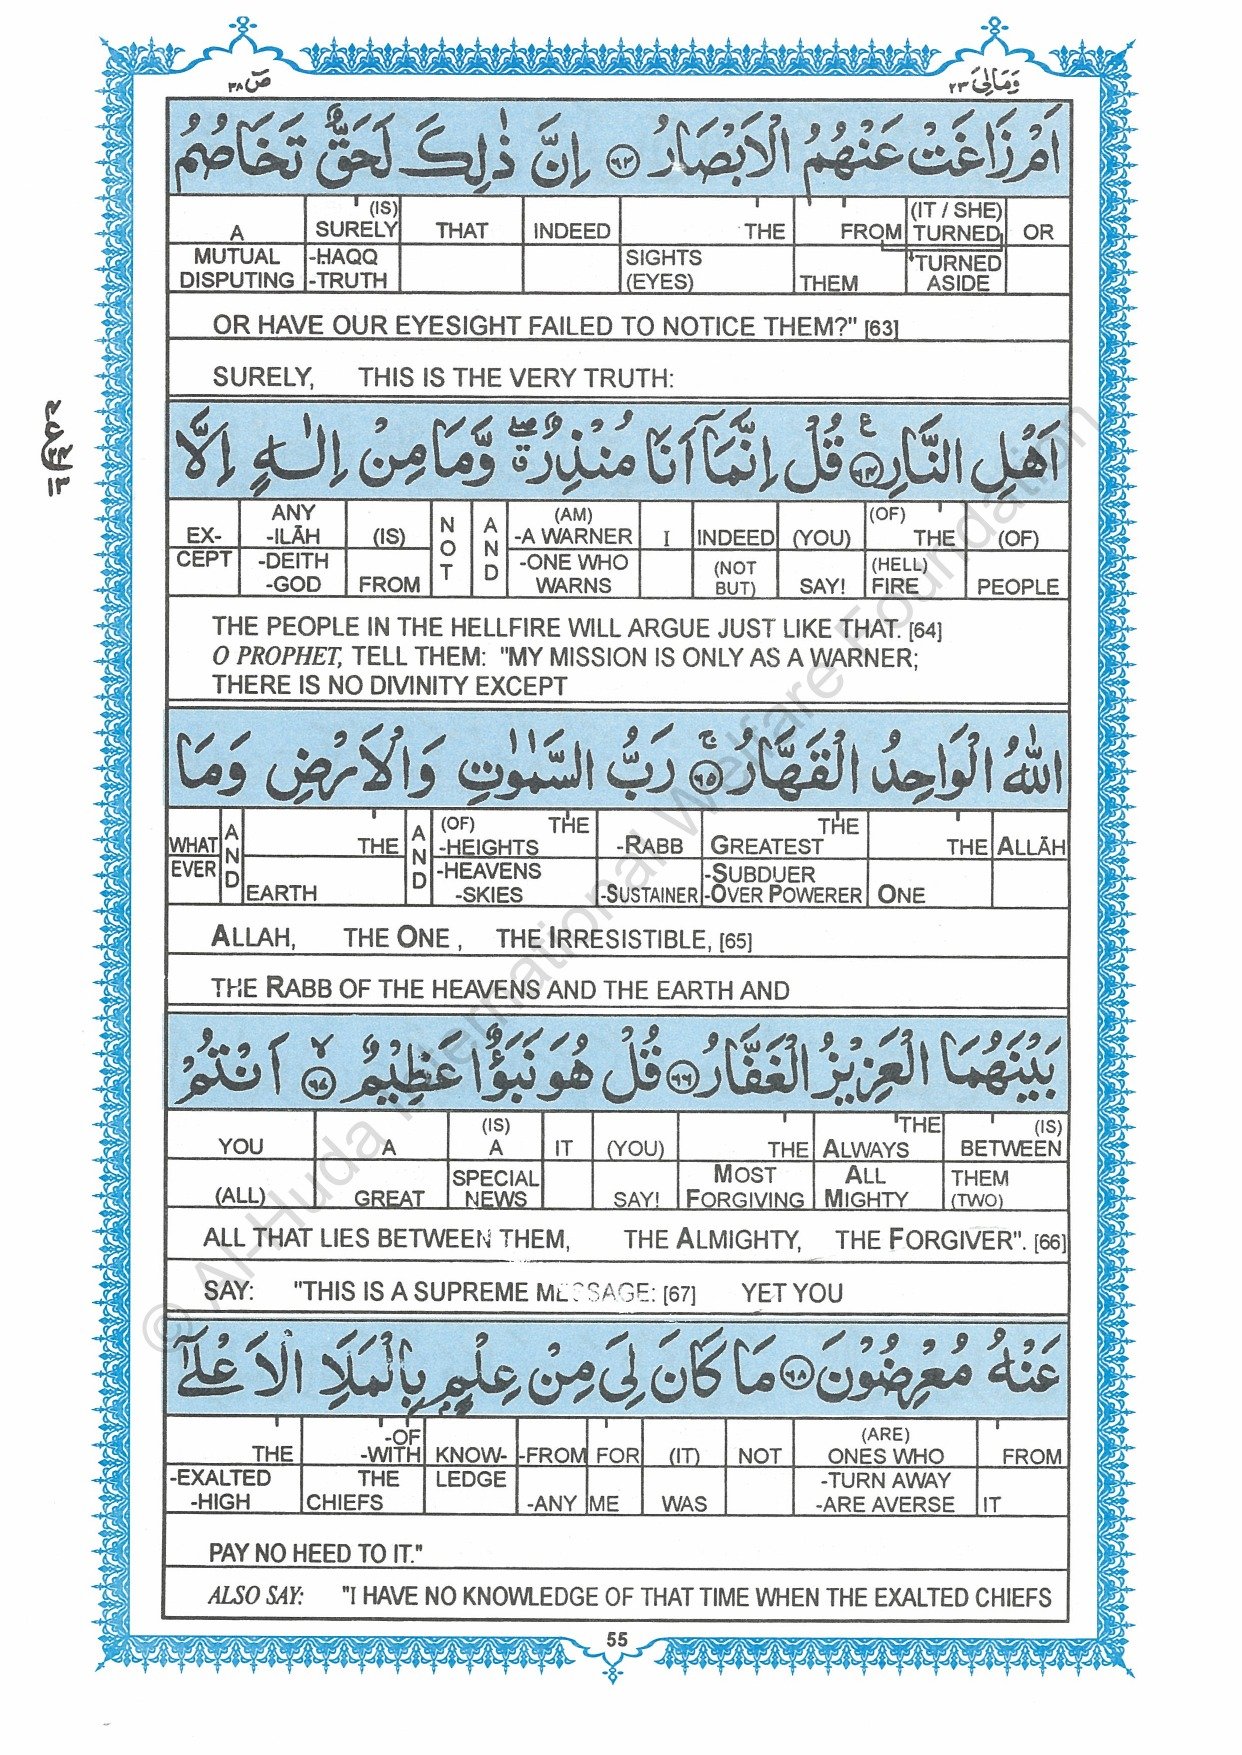 صٓ ٣٨ وَمَالِىَ ٢٣
اَمْ زَاغَتْ عَنْهُمُ الْاَبْصَارُ ﴿٦٣﴾ اِنَّ ذٰلِكَ لَحَقٌّ تَخَاصُمُ
A (IS) SURELY THAT INDEED THE FROM (IT / SHE) TURNED OR
MUTUAL DISPUTING -HAQQ -TRUTH SIGHTS (EYES) THEM TURNED ASIDE
OR HAVE OUR EYESIGHT FAILED TO NOTICE THEM?" [63]
SURELY, THIS IS THE VERY TRUTH:
اَهْلِ النَّارِ ﴿٦٤﴾ قُلْ اِنَّمَآ اَنَا مُنْذِرٌ وَّمَا مِنْ اِلٰهٍ اِلَّا
EX- ANY -ILĀH (IS) NOT AND (AM) -A WARNER I INDEED (YOU) (OF) THE (OF)
CEPT -DEITH -GOD FROM -ONE WHO WARNS (NOT BUT) SAY! (HELL) FIRE PEOPLE
THE PEOPLE IN THE HELLFIRE WILL ARGUE JUST LIKE THAT. [64]
O PROPHET, TELL THEM: "MY MISSION IS ONLY AS A WARNER;
THERE IS NO DIVINITY EXCEPT
اللّٰهُ الْوَاحِدُ الْقَهَّارُ ﴿٦٥﴾ رَبُّ السَّمٰوٰتِ وَالْاَرْضِ وَمَا
WHAT AND THE AND (OF) THE -HEIGHTS -RABB THE GREATEST THE ALLĀH
EVER EARTH -HEAVENS -SKIES -SUSTAINER -SUBDUER -OVER POWERER ONE
ALLAH, THE ONE , THE IRRESISTIBLE, [65]
THE RABB OF THE HEAVENS AND THE EARTH AND
بَيْنَهُمَا الْعَزِيْزُ الْغَفَّارُ ﴿٦٦﴾ قُلْ هُوَ نَبَؤٌا عَظِيْمٌ ﴿٦٧﴾ اَنْتُمْ
YOU A (IS) A IT (YOU) THE THE ALWAYS (IS) BETWEEN
(ALL) GREAT SPECIAL NEWS SAY! MOST FORGIVING ALL MIGHTY THEM (TWO)
ALL THAT LIES BETWEEN THEM, THE ALMIGHTY, THE FORGIVER". [66]
SAY: "THIS IS A SUPREME MESSAGE: [67] YET YOU
عَنْهُ مُعْرِضُوْنَ ﴿٦٨﴾ مَا كَانَ لِىَ مِنْ عِلْمٍۭ بِالْمَلَاِ الْاَعْلٰٓى
THE -OF -WITH KNOW- -FROM FOR (IT) NOT (ARE) ONES WHO FROM
-EXALTED -HIGH THE CHIEFS LEDGE -ANY ME WAS -TURN AWAY -ARE AVERSE IT
PAY NO HEED TO IT."
ALSO SAY: "I HAVE NO KNOWLEDGE OF THAT TIME WHEN THE EXALTED CHIEFS
55
© Al-Huda International Welfare Foundation